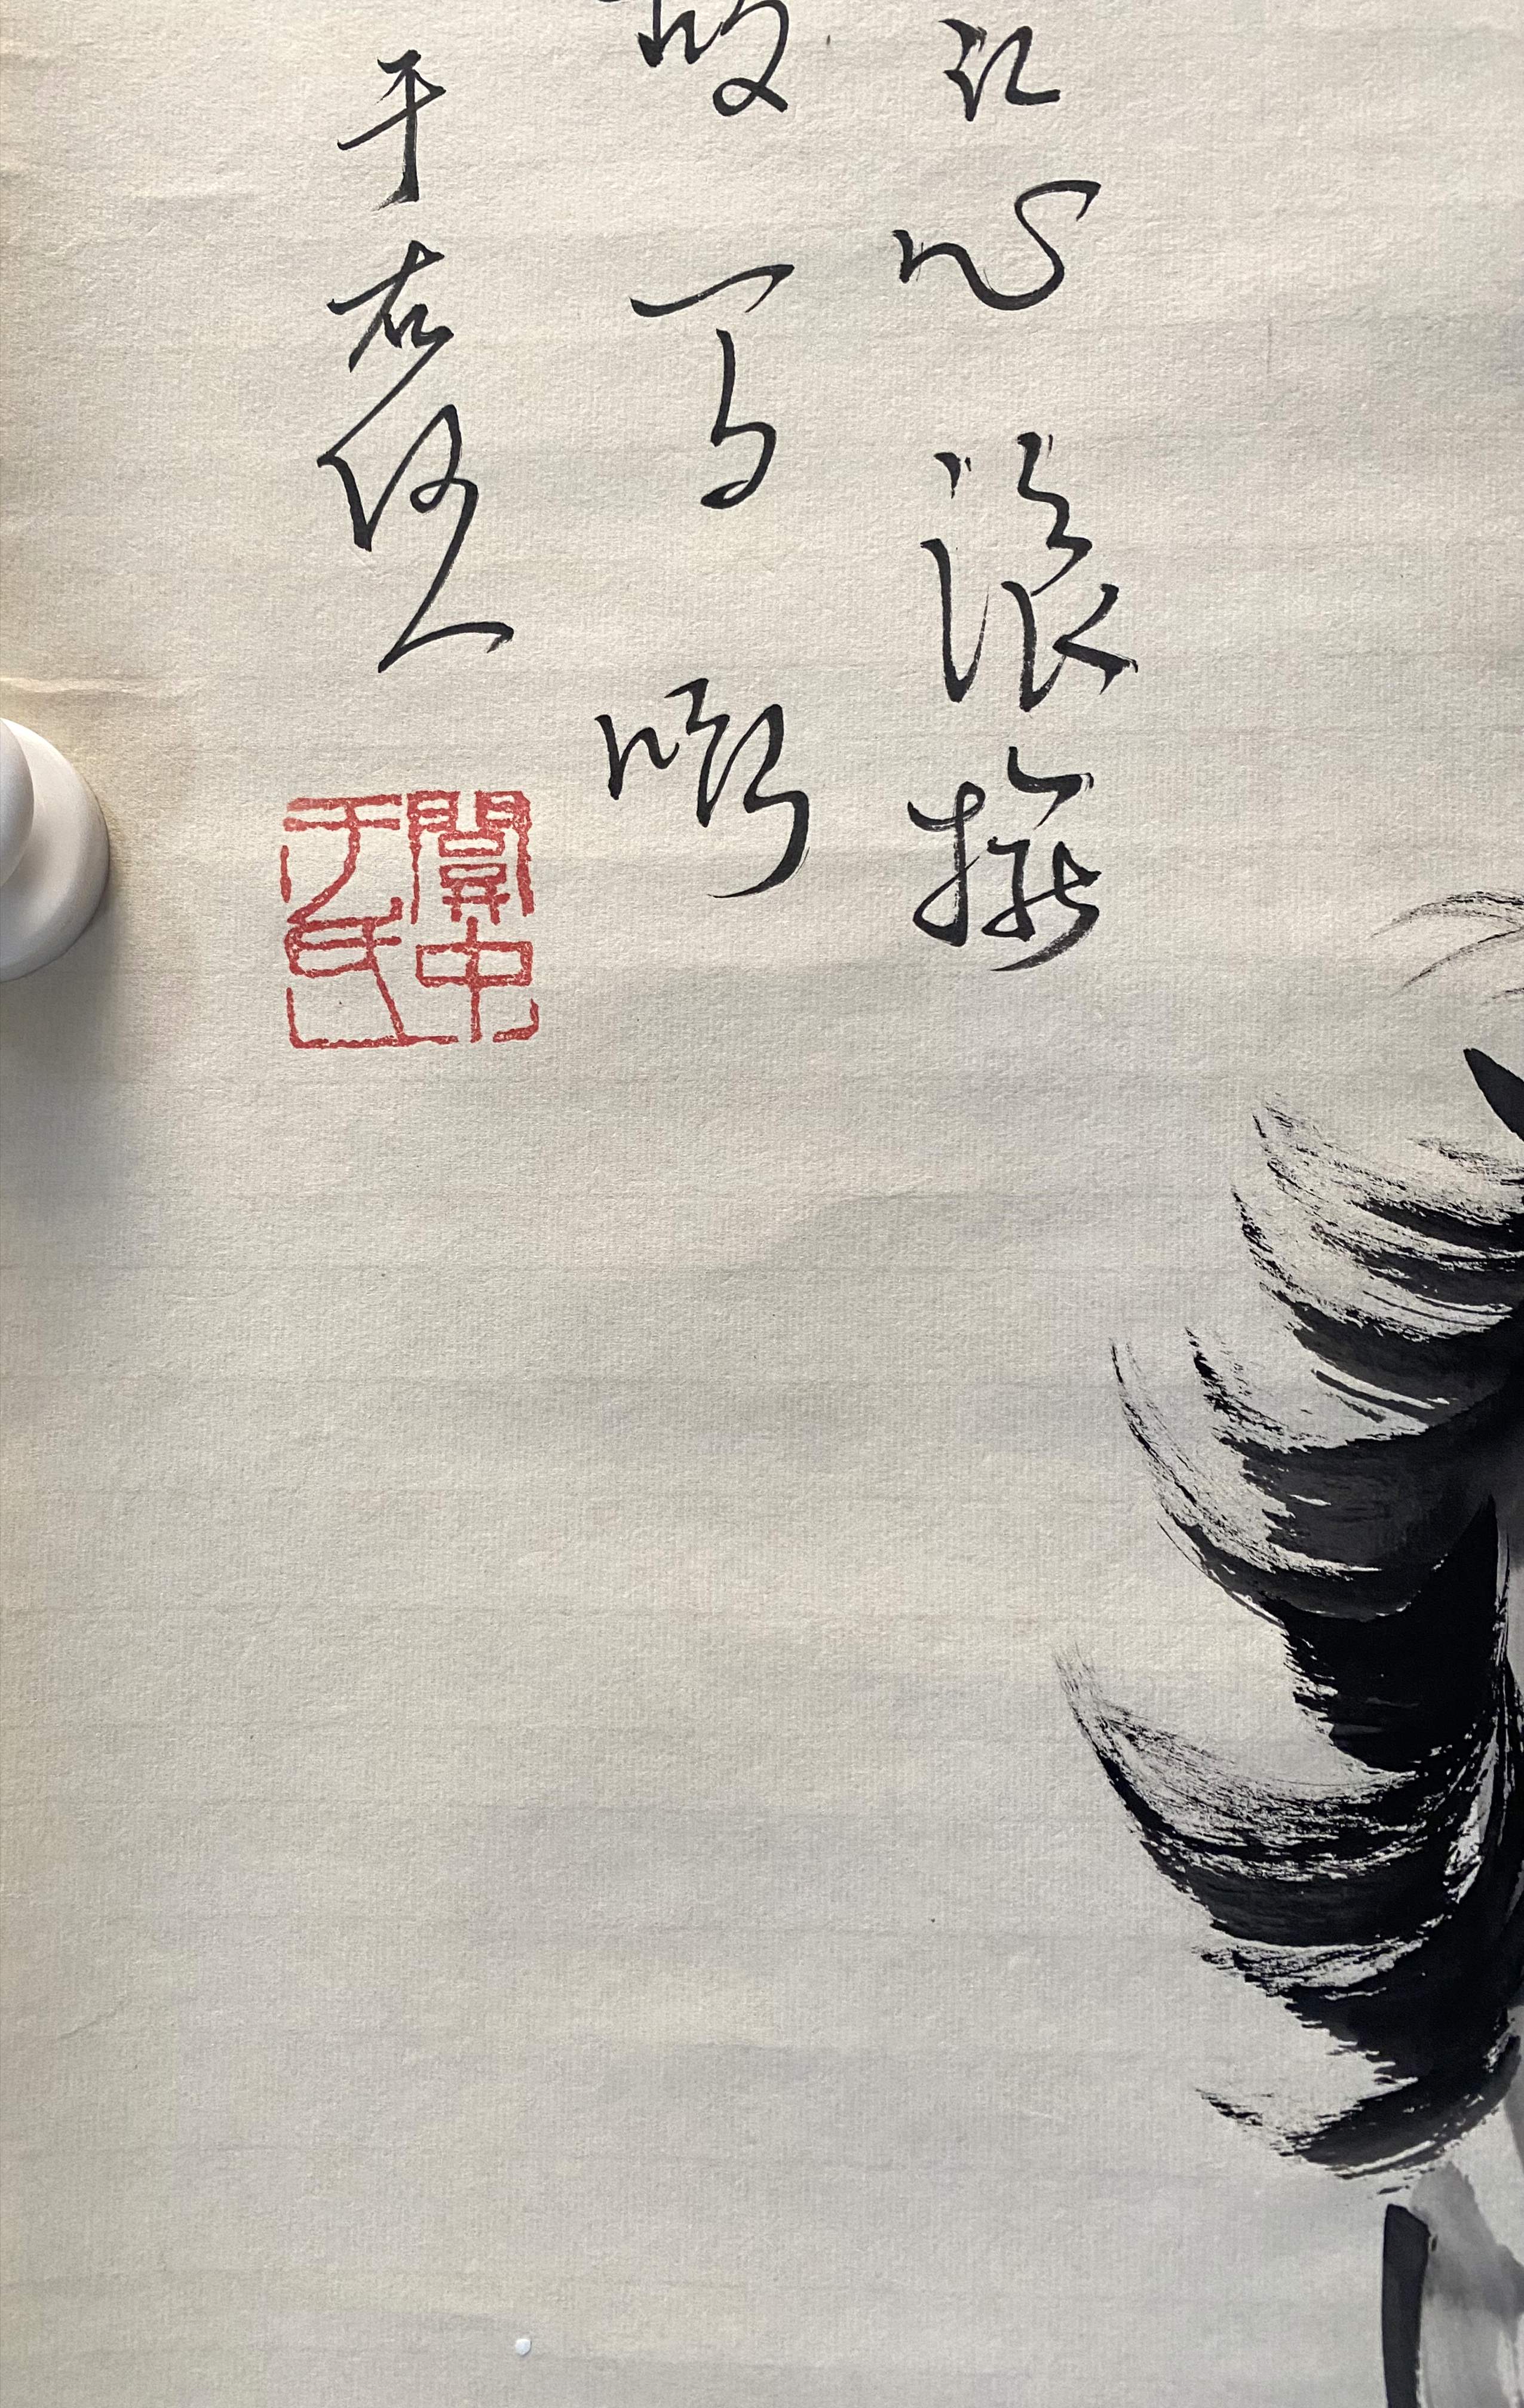 江心浪擁
嘶
于右任
關中于氏